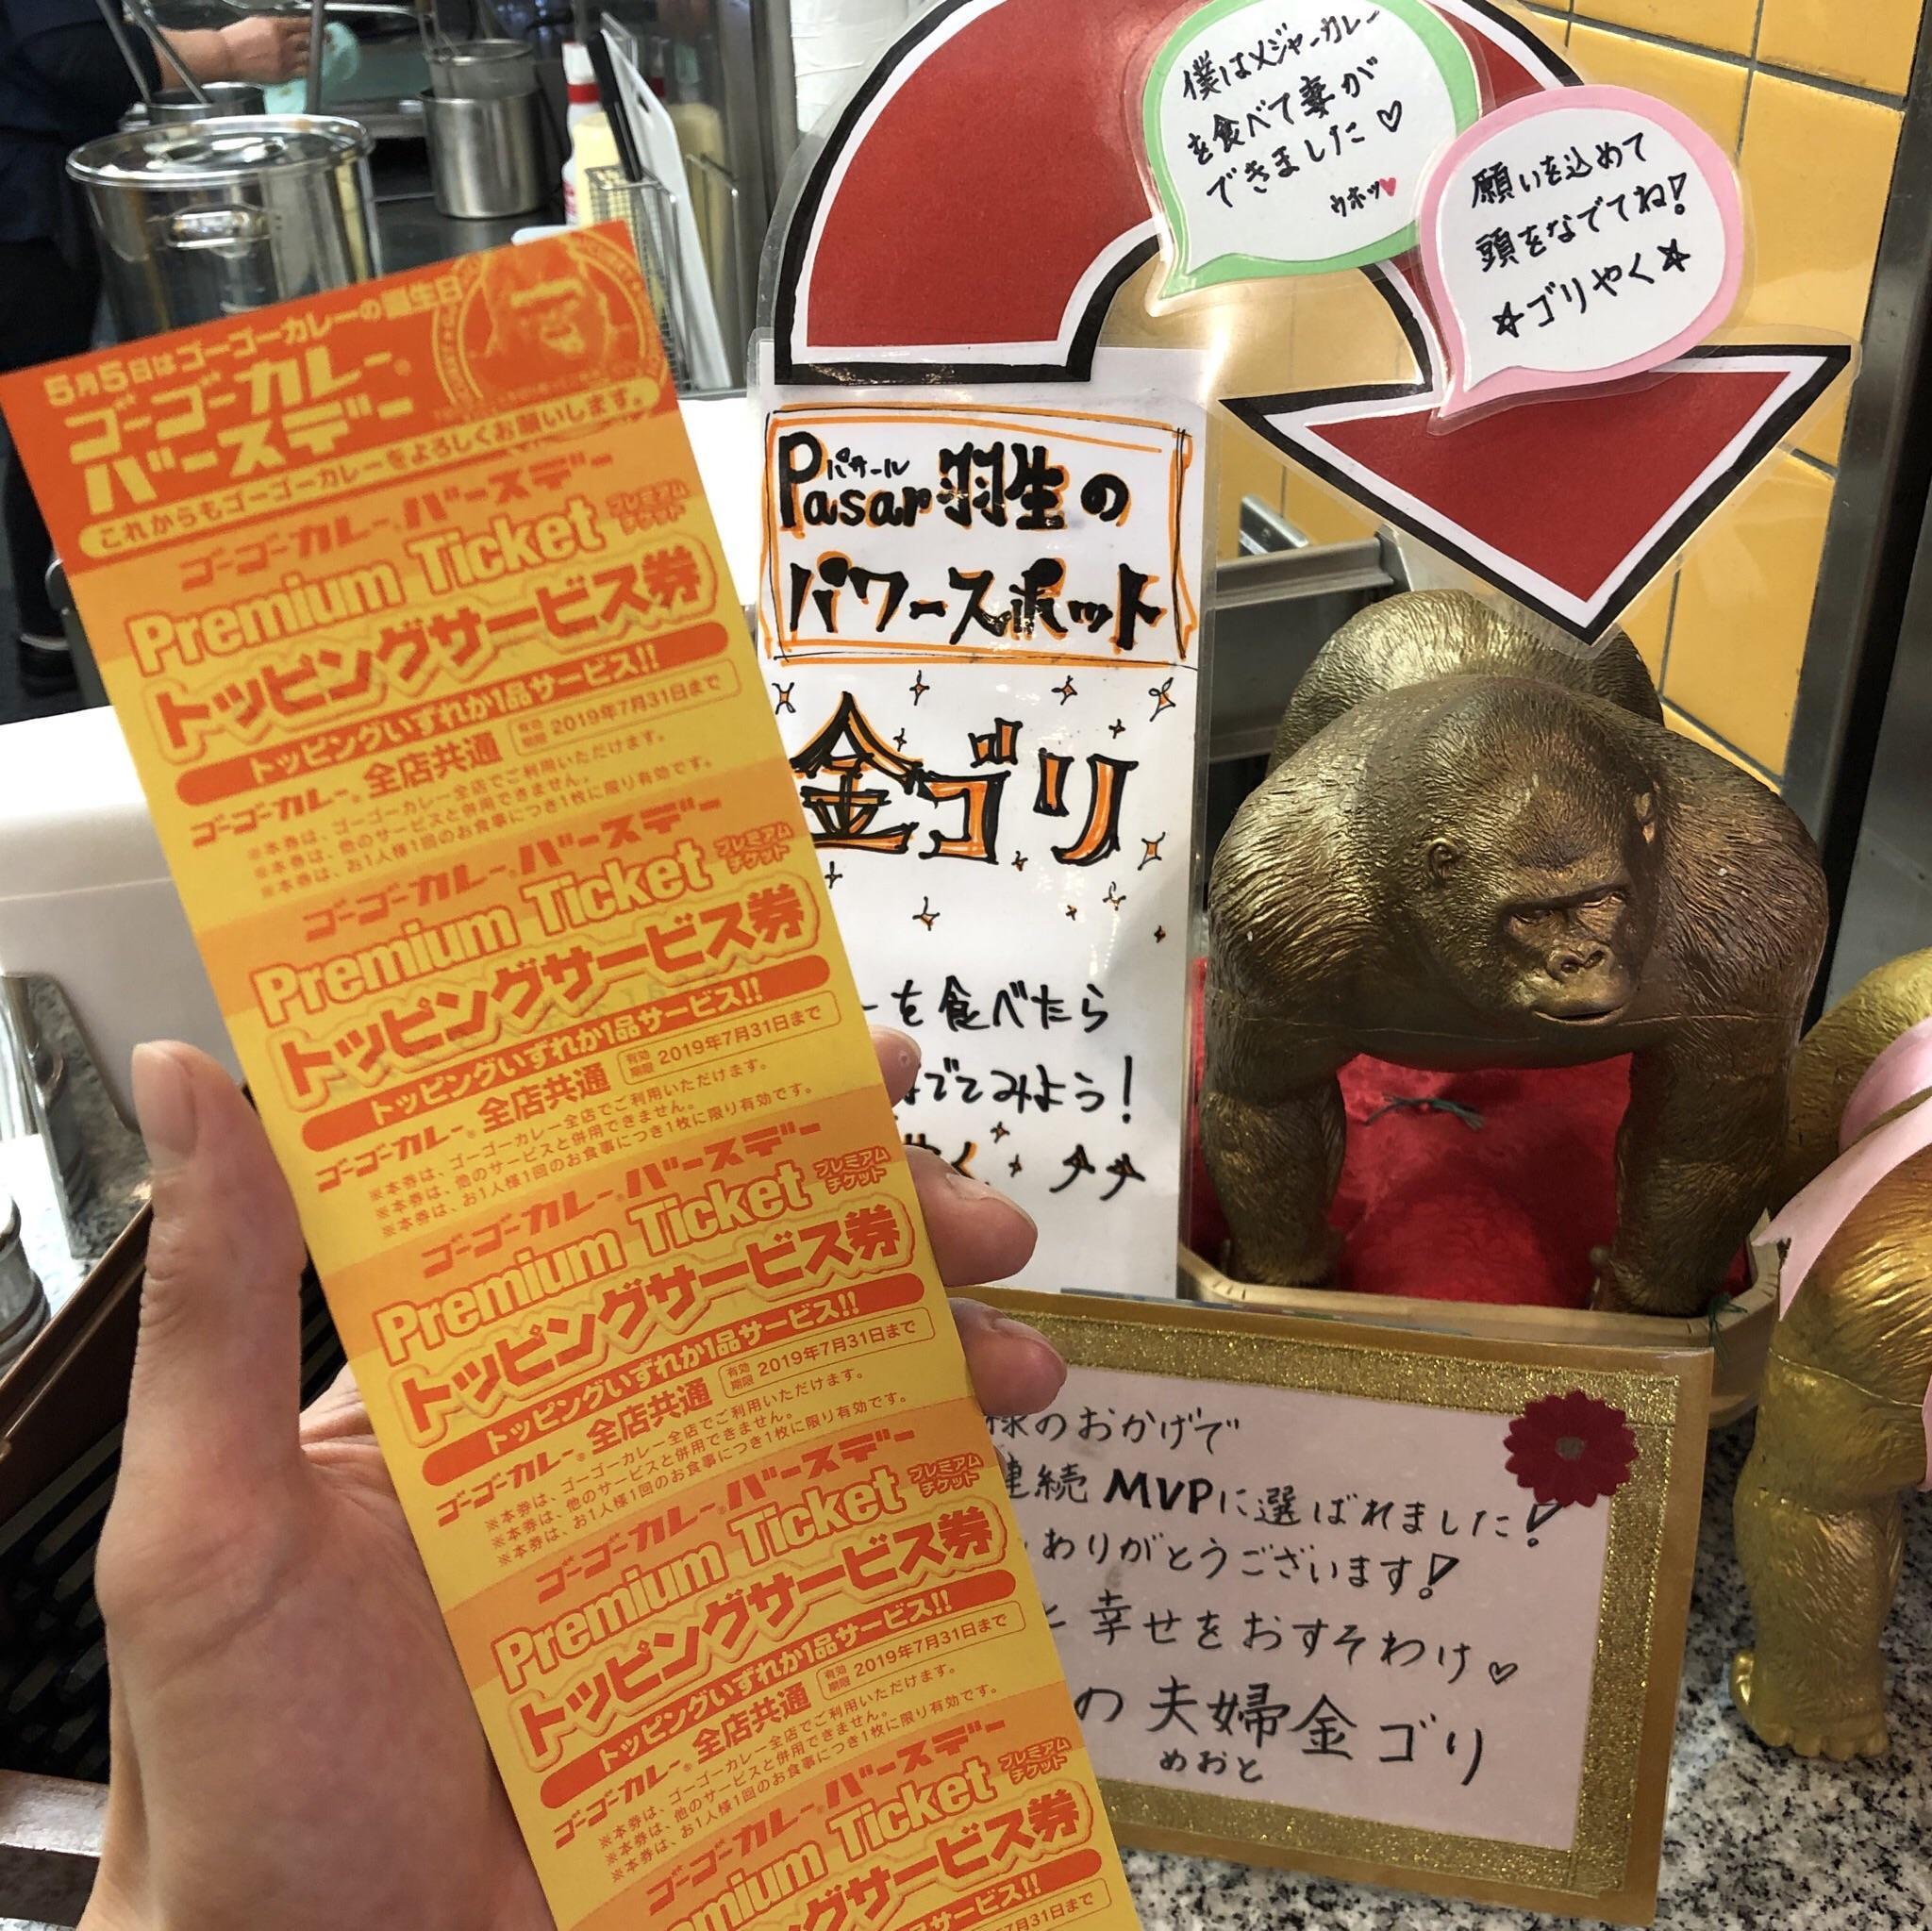 5月5日はゴーゴーカレーの誕生日
ゴーゴーカレー®
バースデー
これからもゴーゴーカレーをよろしくお願いします。
ゴーゴーカレー®バースデー
Premium Ticket プレミアムチケット
トッピングサービス券
トッピングいずれか1品サービス!!
ゴーゴーカレー® 全店共通 有効期限 2019年7月31日まで
※本券は、ゴーゴーカレー全店でご利用いただけます。
※本券は、他のサービスと併用できません。
※本券は、お1人様1回のお食事につき1枚に限り有効です。
ゴーゴーカレー®バースデー
Premium Ticket プレミアムチケット
トッピングサービス券
トッピングいずれか1品サービス!!
ゴーゴーカレー® 全店共通 有効期限 2019年7月31日まで
※本券は、ゴーゴーカレー全店でご利用いただけます。
※本券は、他のサービスと併用できません。
※本券は、お1人様1回のお食事につき1枚に限り有効です。
ゴーゴーカレー®バースデー
Premium Ticket プレミアムチケット
トッピングサービス券
トッピングいずれか1品サービス!!
ゴーゴーカレー® 全店共通 有効期限 2019年7月31日まで
※本券は、ゴーゴーカレー全店でご利用いただけます。
※本券は、他のサービスと併用できません。
※本券は、お1人様1回のお食事につき1枚に限り有効です。
ゴーゴーカレー®バースデー
Premium Ticket プレミアムチケット
トッピングサービス券
トッピングいずれか1品サービス!!
ゴーゴーカレー® 全店共通 有効期限 2019年7月31日まで
※本券は、ゴーゴーカレー全店でご利用いただけます。
※本券は、他のサービスと併用できません。
※本券は、お1人様1回のお食事につき1枚に限り有効です。
ゴーゴーカレー®バースデー
mium Ticket プレミアムチケット
ングサービス券
品サービス!!
7月31日まで
僕はメジャーカレー
を食べて妻が
できました♡
ウホッ♥
願いを込めて
頭をなでてね!
☆ゴリやく☆
パサール
Pasar羽生の
パワースポット
金ゴリ
ーを食べたら
なでてみよう!
様のおかげで
連続MVPに選ばれました!
ありがとうございます!
と幸せをおすそわけ♡
の夫婦金ゴリ
めおと